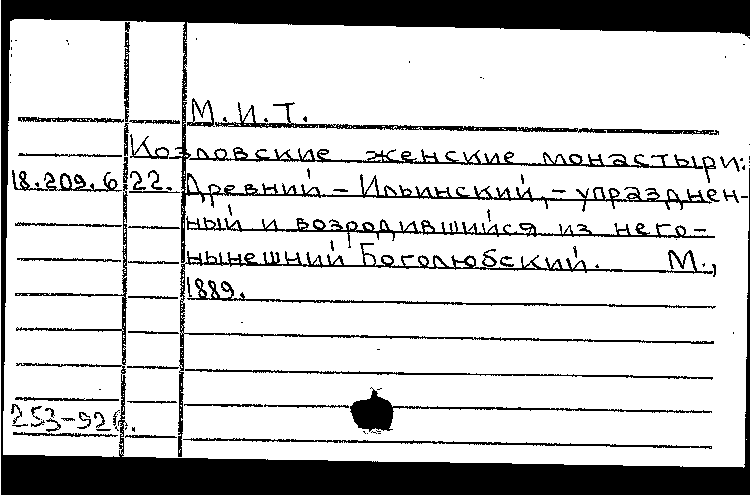 М.И.Т.
Козловские женские монастыри:
18.209.6.22. Древний – Ильинский, – упразднен-
ный и возродившийся из него –
нынешний Боголюбский. М.,
1889.
253–926.